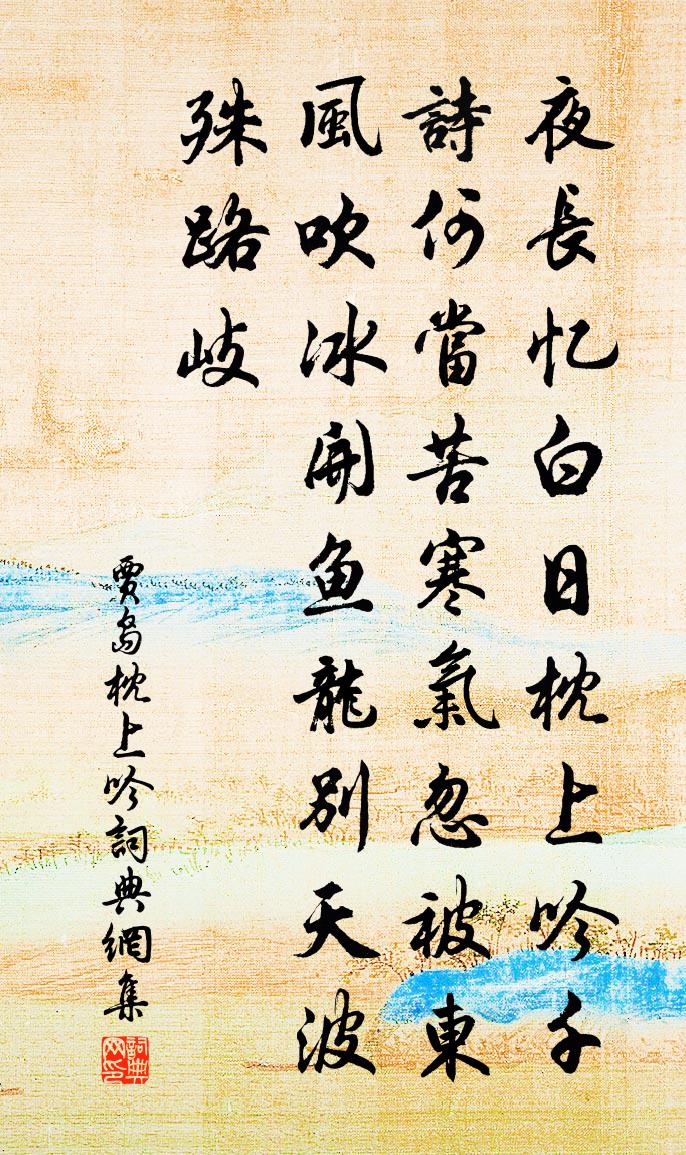 夜長忆白日枕上吟千
詩何當苦寒氣忽被東
風吹冰開魚龍別天波
殊路歧
賈島枕上吟詞典網集
詞典网印